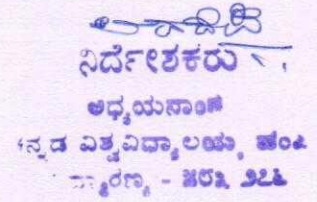 ನಿರ್ದೇಶಕರು
ಅಧ್ಯಯನಾಂಗ
ನ್ನಡ ವಿಶ್ವವಿದ್ಯಾಲಯ, ಹಂಪಿ
ರಣ್ಯ - ೫೮೩ ೨೭೬